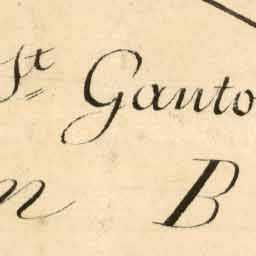 St Ganto
n B